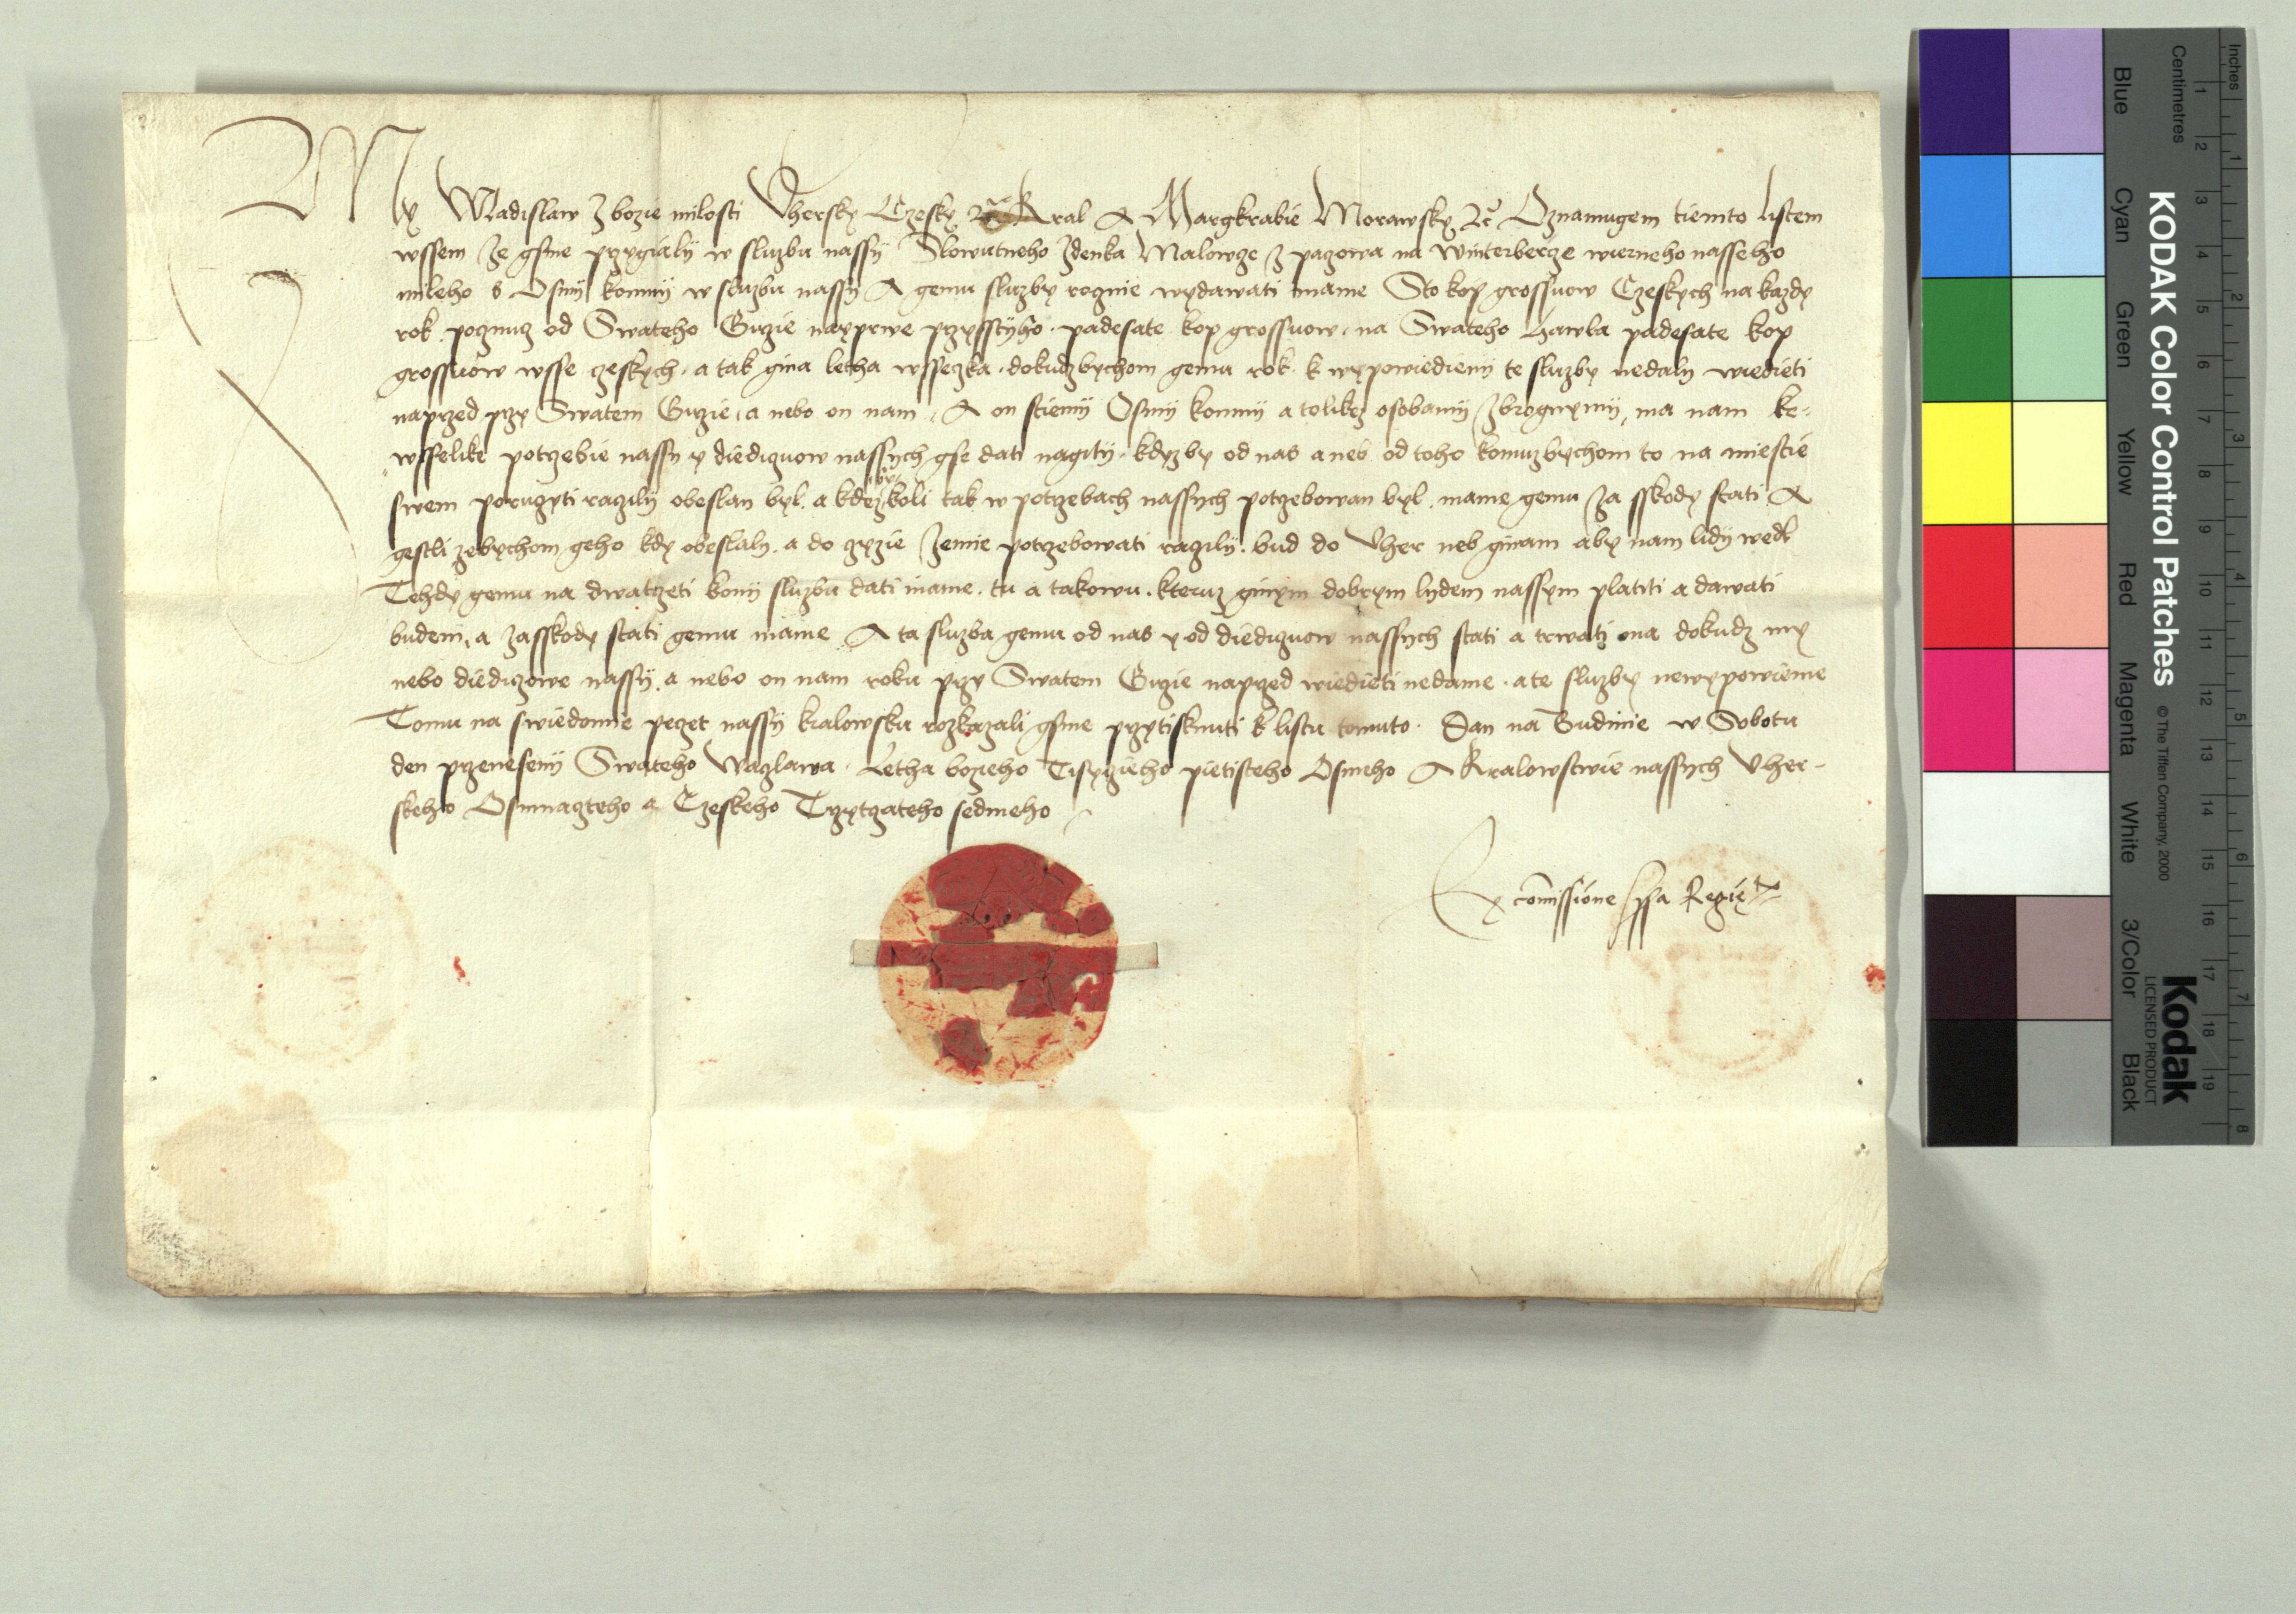 My Wladislaw z bozie milosti Uhersky Czesky ⁊c̃ Kral A Margkrabie Morawsky ⁊c̃ Oznamugem tiemto listem
wssem Ze gsme przygialy w sluzbu nassy Slowutneho Zdenka Malowcze z paczowa na Winterbercze wierneho nasseho
mileho s Osmy konmy w sluzbu nassy A gemu sluzby rocznie wydawati mame Sto kop grossuow Czeskych na kazdy
rok pocznucz od Swateho Girzie nayprwe przysstyho padesate kop grossuow na Swateho Hawla padesate kop
grossuow wsse czeskych a tak gina letha wsseczka dokudzbychom gemu rok k wypowiedieny te sluzby nedaly wiedieti
naprzed przy Swatem Girzie a nebo on nam A on stiemy Osmy konmy a tolikez osobamy zbrognymy ma nam ke-
wsselike potrzebie nassy y diediczuow nassych gse dati nagity kdyzby od nas a neb od toho komuzbychom to na miestie
swem poruczyti raczily obeslan byl a kdezby koli tak w potrzebach nassych potrzebowan byl mame gemu za sskody stati A
gestli zebychom geho kdy obeslaly a do czyzie Zemie potrzebowati raczily bud do Uher neb ginam aby nam lidy wedl
Tehdy gemu na dwatczeti kony sluzbu dati mame tu a takowu kteruz ginym dobrym lydem nassym platiti a dawati
budem a zasskody stati gemu mame A ta sluzba gemu od nas y od diediczuow nassych stati a trwati ma dokudz my
nebo diediczowe nassy a nebo on nam roku przy Swatem Girzie naprzed wiedieti nedame a te sluzby newypowieme
Tomu na swiedomie peczet nassy kralowsku rozkazali gsme przytisknuti k listu tomuto Dan na Budinie w Sobotu
den przeneseny Swateho Waczlawa Letha bozieho Tisyczieho pietisteho Osmeho A Kralowstwie nassych Uher-
skeho Osmnaczteho a Czeskeho Trzytczateho sedmeho
Ex com̃issione ppa Regie
KODAK Color Control Patches
© The Tiffen Company, 2000
Kodak
LICENSED PRODUCT
Blue Cyan Green Yellow Red Magenta White 3/Color Black
Centimetres 1 2 3 4 5 6 7 8 9 10 11 12 13 14 15 16 17 18 19
Inches 1 2 3 4 5 6 7 8